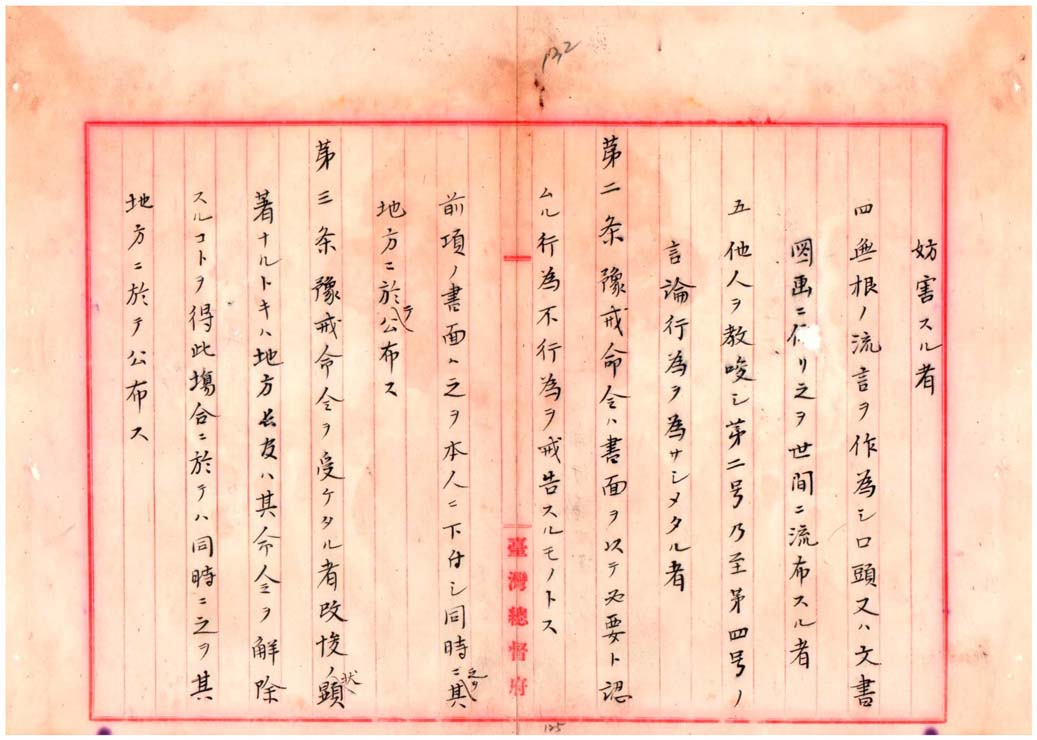 132
妨害スル者
四 無根ノ流言ヲ作為シ口頭又ハ文書
図画ニ依リ之ヲ世間ニ流布スル者
五 他人ヲ教唆シ第二号乃至第四号ノ
言論行為ヲ為サシメタル者
第二条 豫戒命令ハ書面ヲ以テ必要ト認
ムル行為不行為ヲ戒告スルモノトス
臺灣總督府
前項ノ書面ハ之ヲ本人ニ下付シ同時ニ之ヲ其
地方ニ於テ公布ス
第三条 豫戒命令ヲ受ケタル者改悛ノ状顕
著ナルトキハ地方長官ハ其命令ヲ解除
スルコトヲ得此場合ニ於テハ同時ニ之ヲ其
地方ニ於テ公布ス
125